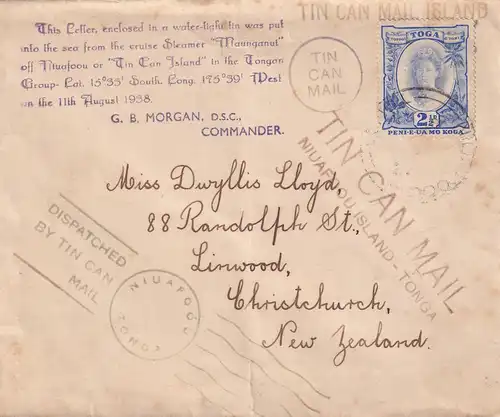 TIN CAN MAIL ISLAND
This Letter, enclosed in a water-tight tin was put
into the sea from the cruise Steamer "Maunganui"
off Niuafoou or "Tin Can Island" in the Tongan
Group- Lat. 15°35' South. Long. 175°39' West
on the 11th August 1938.
G. B. MORGAN, D.S.C.,
COMMANDER.
TIN
CAN
MAIL
TOGA
2½
PENI-E-UA MO KOGA
TIN CAN MAIL
NIUAFOOU ISLAND - TONGA
Miss Dwyllis Lloyd,
88 Randolph St.,
Linwood,
Christchurch,
New Zealand.
DISPATCHED
BY TIN CAN
MAIL
NIUAFOOU
TONGA